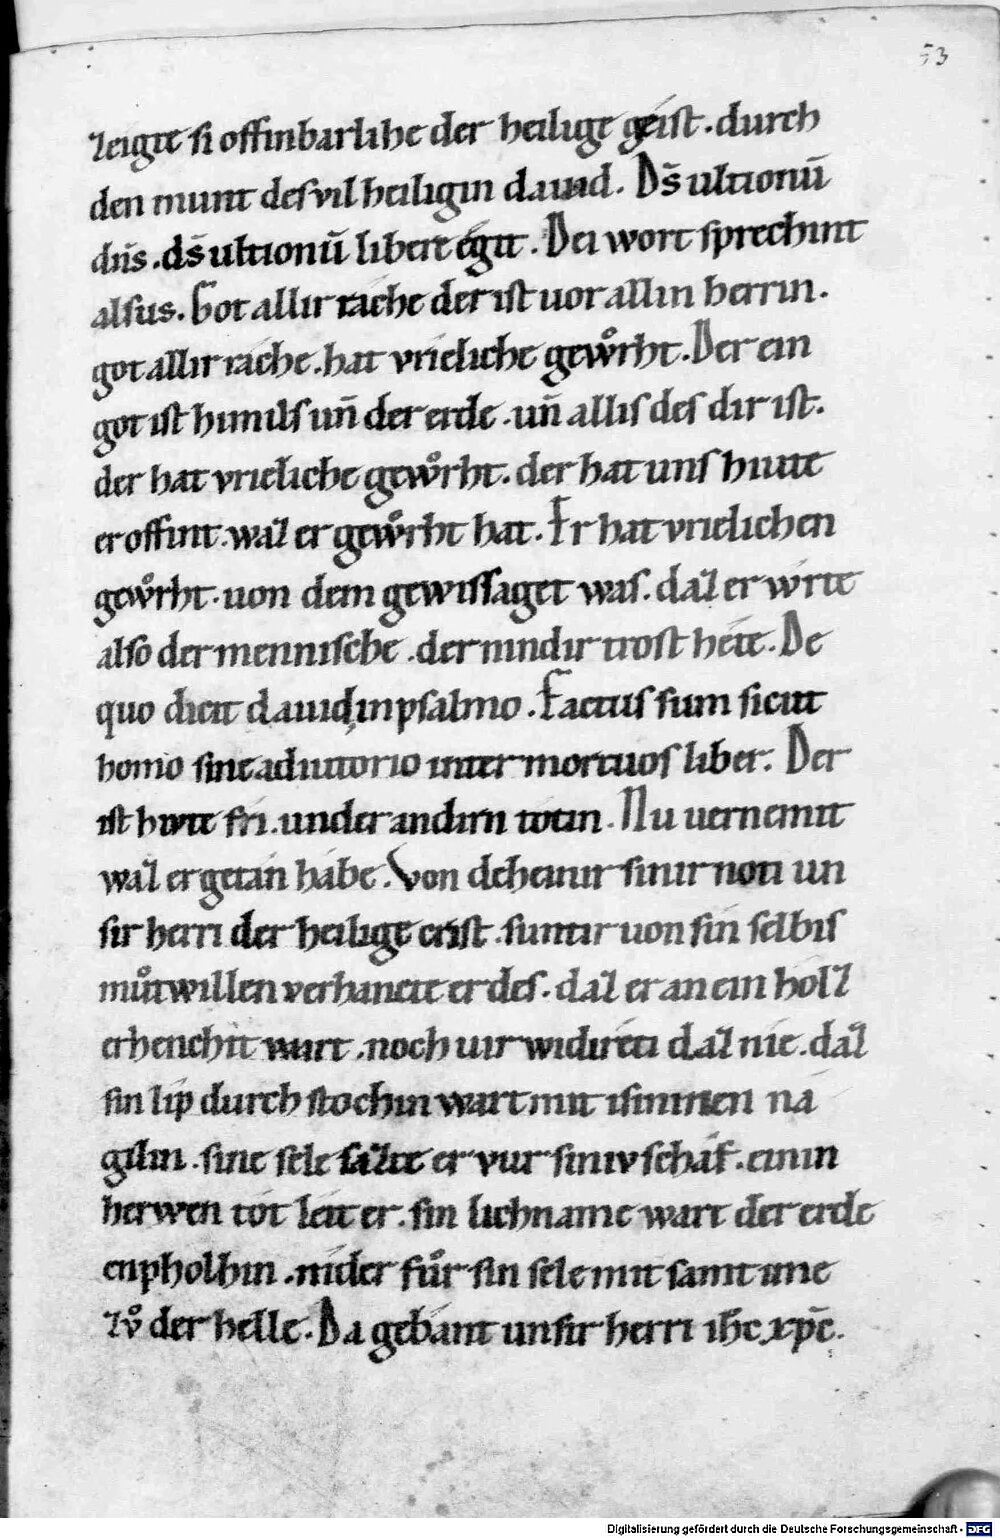 53
zeigte si offinbarlihe der heilige geist. durch
den munt des vil heiligin dauid. Ds̄ ultionū
dn̄s. ds̄ ultionū libere egit. Dei wort sprechint
alsus. Got allir rache der ist uor allin herrin.
got allir rache. hat vrieliche gewͦrht. Der ein
got ist himils un̄ der erde. un̄ allis des dir ist.
der hat vrieliche gewͦrht. der hat uns hiute
eroffint. waz er gewͦrht hat. Er hat vrielichen
gewͦrht. uon dem gewissaget was. daz er wrte
also der mennische. der nindir trost hete. De
quo dicit dauid in psalmo. Factus sum sicut
homo sine adiutorio inter mortuos liber. Der
ist hivte fri. under andirn totin. Nu uernemit
waz er getán hábe. Von deheinir sinir noti un
sir herri der heilige crist. suntir uon sin selbis
mͦtwillen verhancte er des. daz er an ein holz
erhenchit wart. noch uir widireti daz nie. daz
sin lip durch stochin wart mit isininen na
gilin. sine sele sazte er vur siniv scháf. einin
herwen tót leit er. sin lichname wart der erde
enpholhin. nider fͦr sin sele mit samt ime
zͦ der helle. Da gebánt unsir herri ih̄c xp̄c.
Digitalisierung gefördert durch die Deutsche Forschungsgemeinschaft - DFG